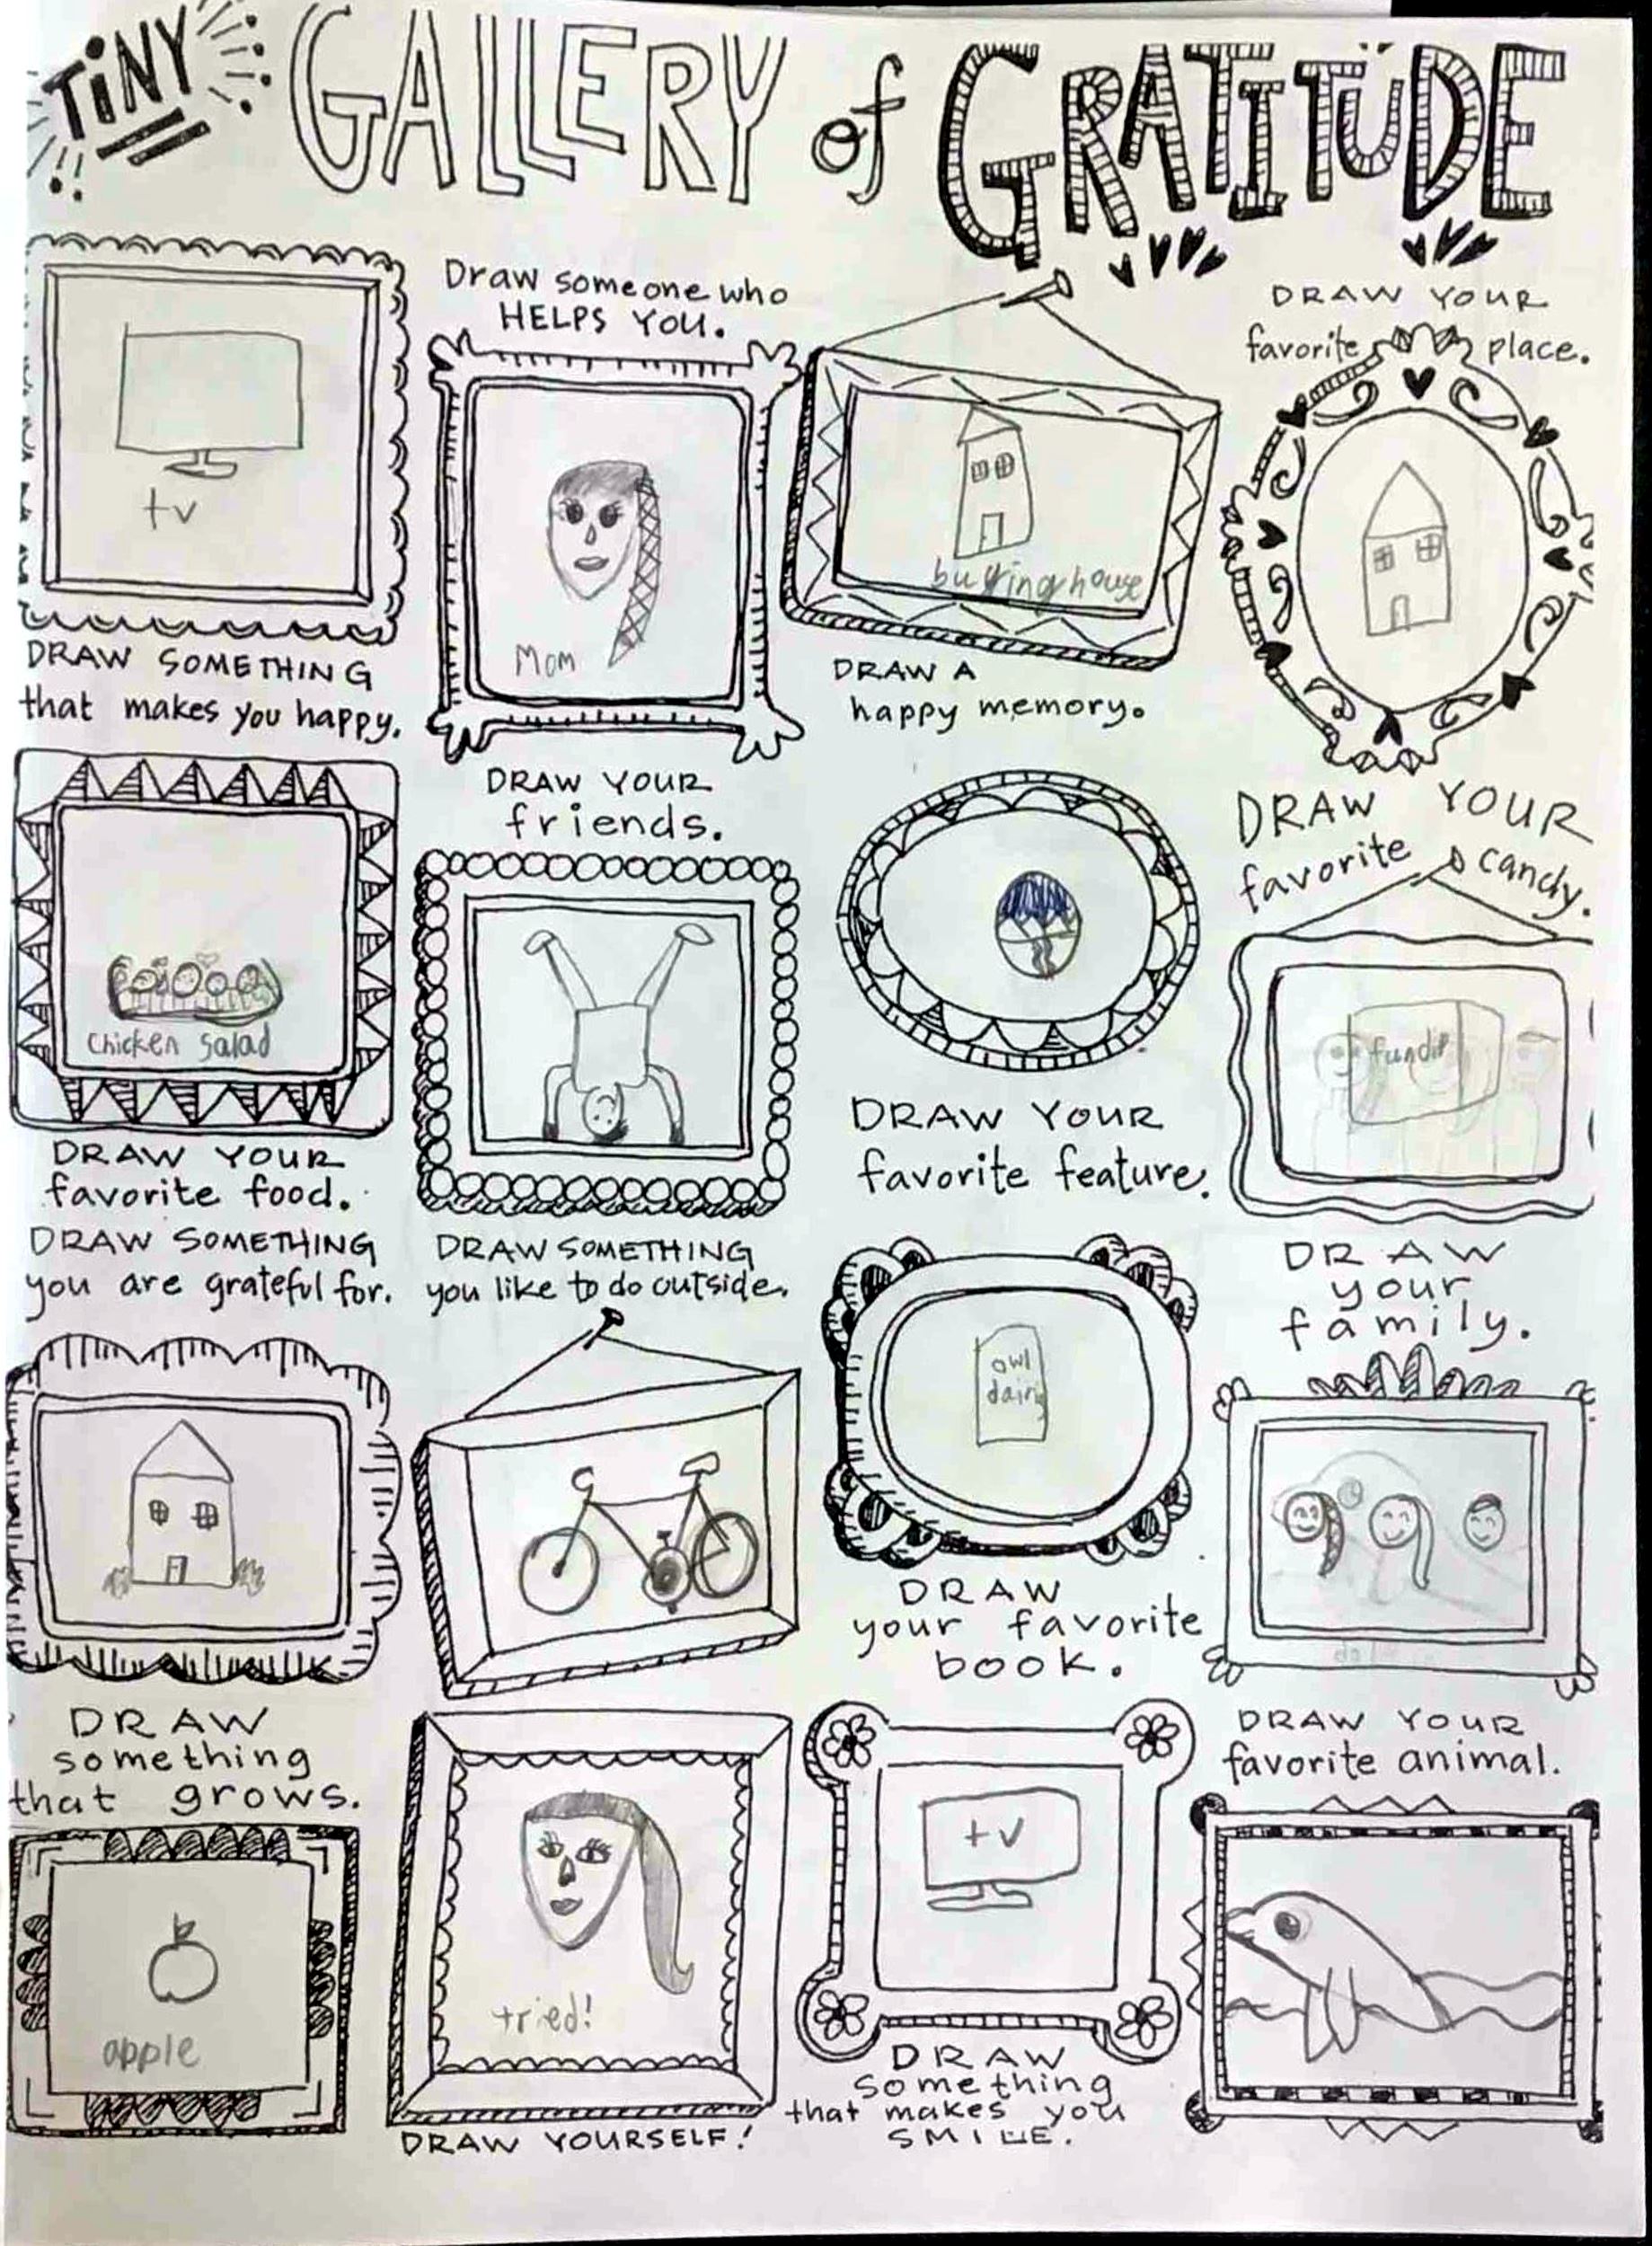 TiNY GALLERY of GRATITUDE
tv
DRAW SOMETHING
that makes you happy.
Draw someone who
HELPS YOU.
Mom
buying house
DRAW A
happy memory.
DRAW YOUR
favorite place.
chicken salad
DRAW YOUR
favorite food.
DRAW YOUR
friends.
DRAW YOUR
favorite feature.
DRAW YOUR
favorite candy.
fundip
DRAW SOMETHING
you are grateful for.
DRAW SOMETHING
you like to do outside.
owl
dairy
DRAW
your favorite
book.
DRAW
your
family.
DRAW
something
that grows.
apple
tried!
DRAW YOURSELF!
tv
DRAW
something
that makes you
SMILE.
DRAW YOUR
favorite animal.